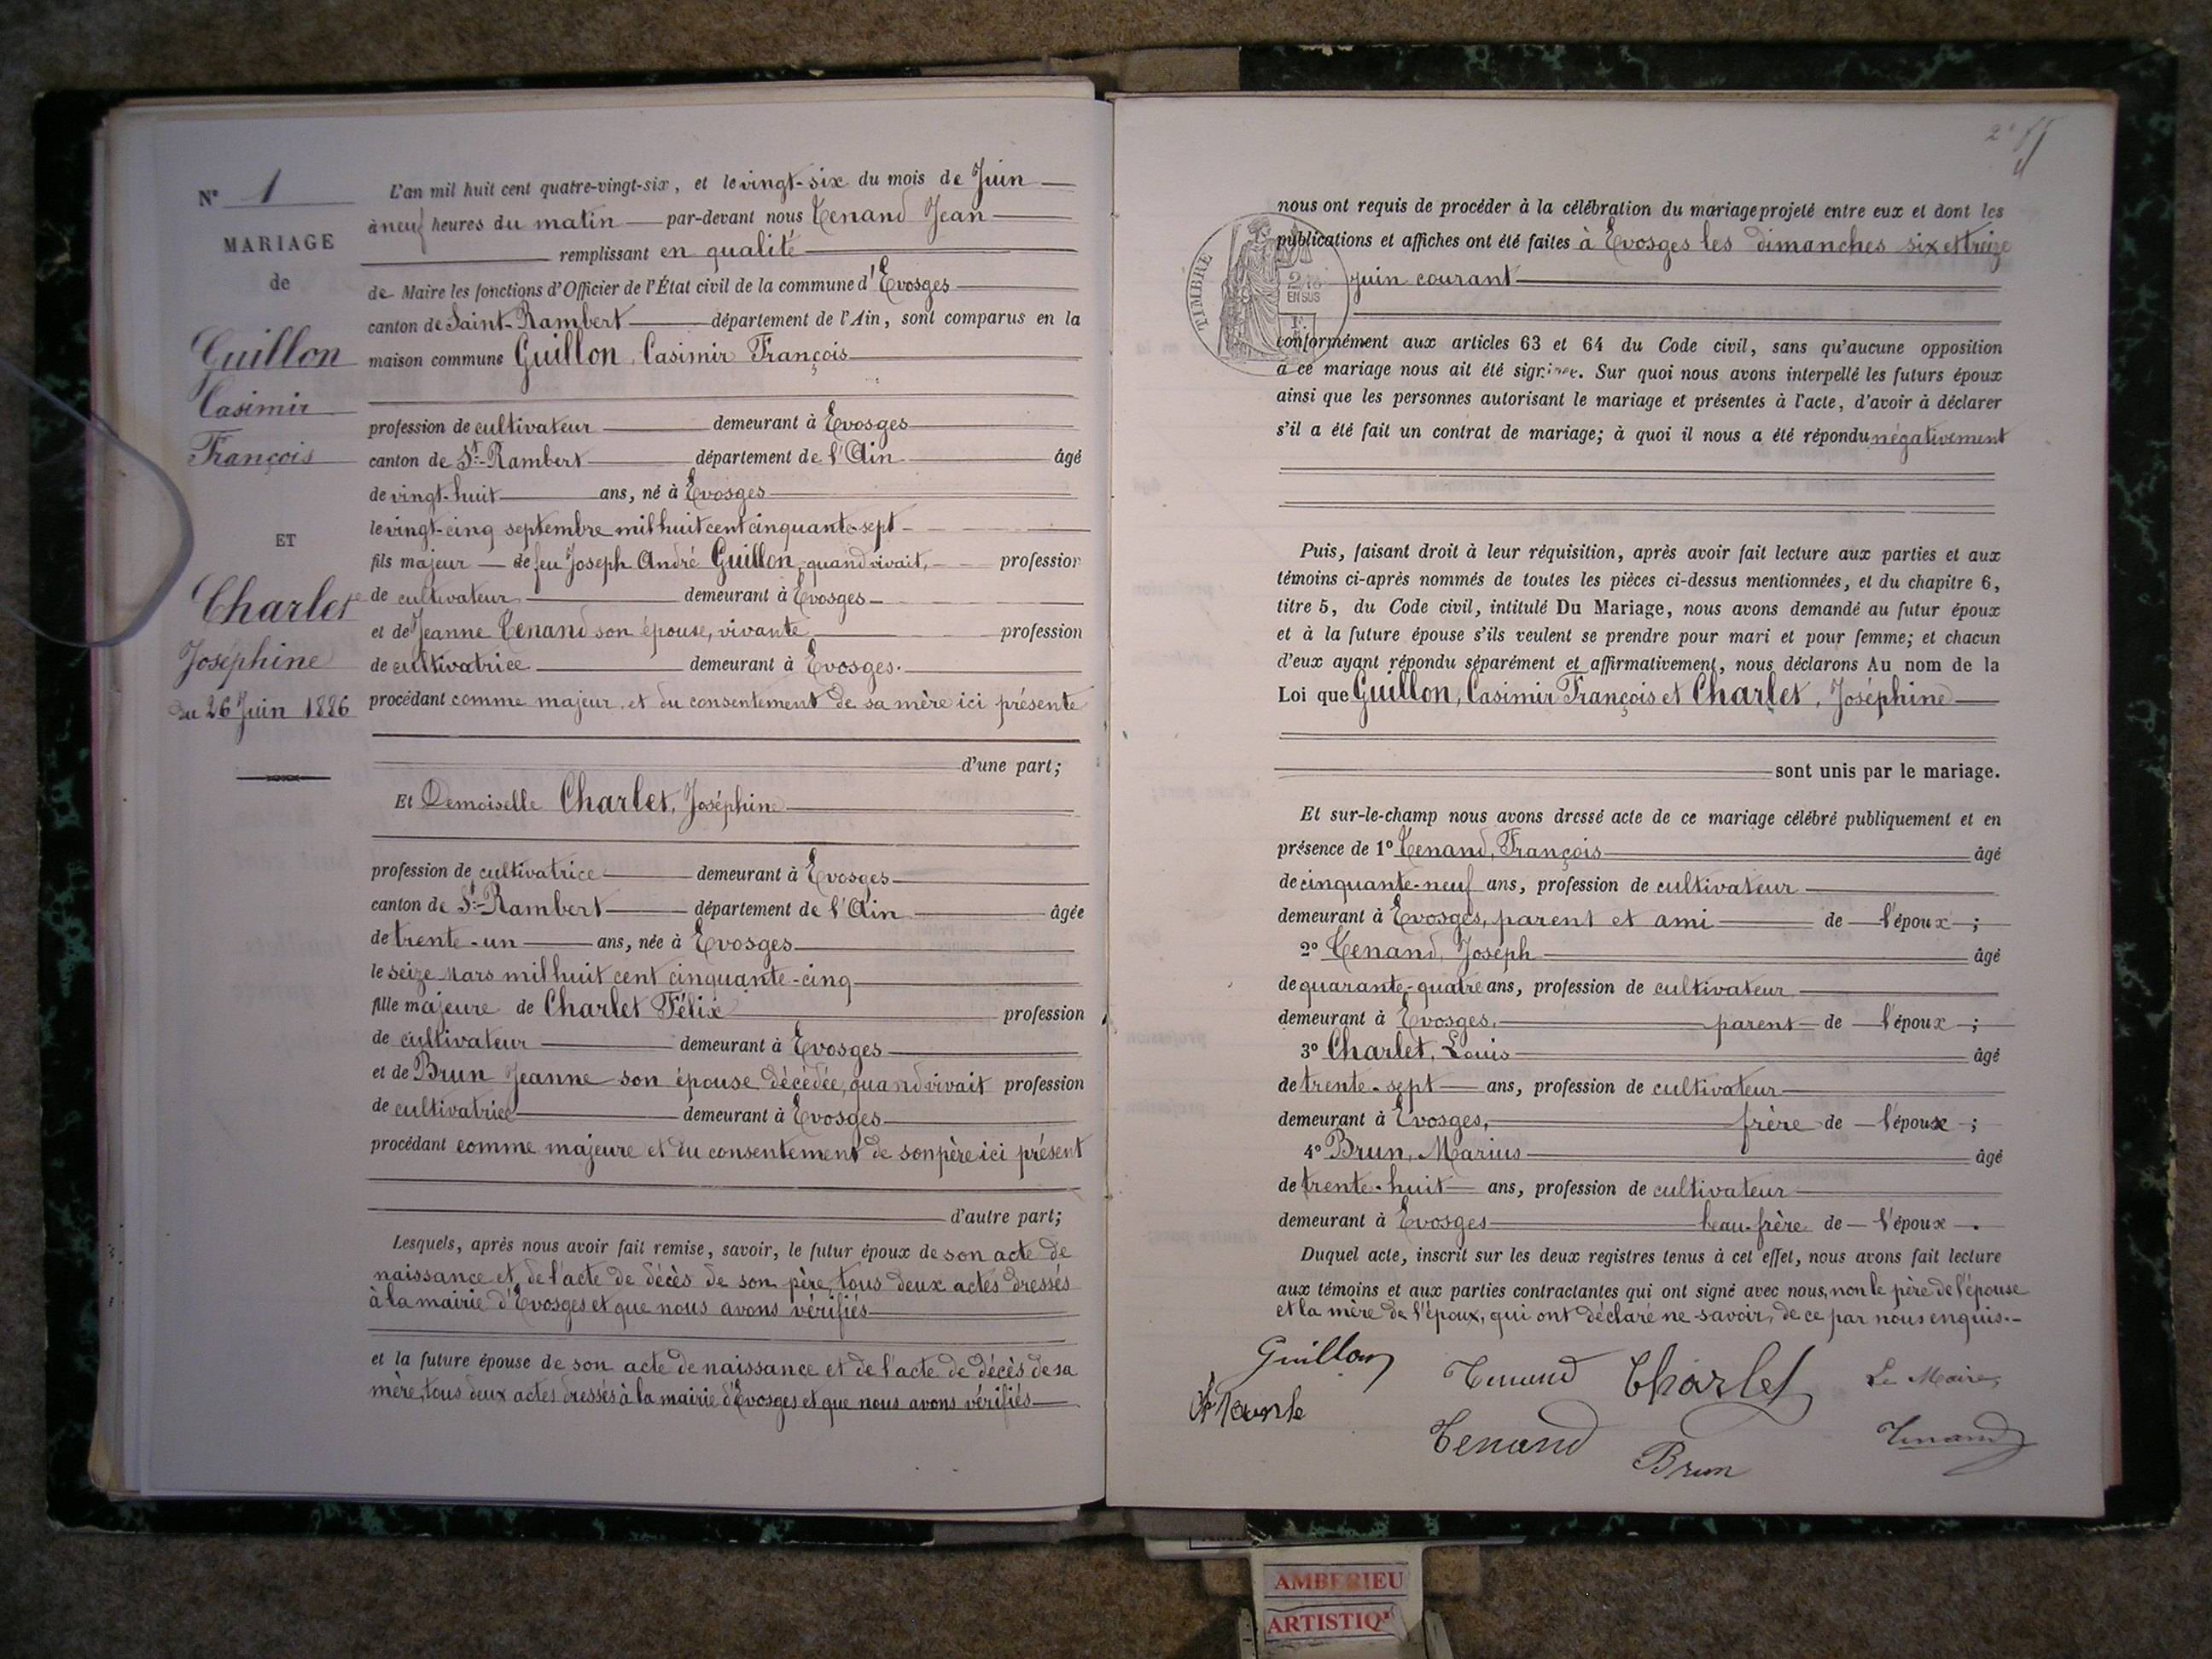 N° 1
MARIAGE
de
Guillon
Casimir
François
ET
Charlet
Joséphine
du 26 Juin 1886
L'an mil huit cent quatre-vingt-six, et le vingt-six du mois de Juin
à neuf heures du matin par-devant nous Tenand Jean
remplissant en qualité
de Maire les fonctions d'Officier de l'État civil de la commune d'Evosges
canton de Saint-Rambert département de l'Ain, sont comparus en la
maison commune Guillon, Casimir François
profession de cultivateur demeurant à Evosges
canton de St-Rambert département de l'Ain âgé
de vingt-huit ans, né à Evosges
le vingt-cinq septembre mil huit cent cinquante-sept
fils majeur de feu Joseph André Guillon, quand vivait, profession
de cultivateur demeurant à Evosges
et de Jeanne Tenand son épouse, vivante profession
de cultivatrice demeurant à Evosges.
procédant comme majeur et du consentement de sa mère ici présente
d'une part;
Et Demoiselle Charlet, Joséphine
profession de cultivatrice demeurant à Evosges
canton de St-Rambert département de l'Ain âgée
de trente-un ans, née à Evosges
le seize mars mil huit cent cinquante-cinq
fille majeure de Charlet Félix profession
de cultivateur demeurant à Evosges
et de Brun Jeanne son épouse décédée, quand vivait profession
de cultivatrice demeurant à Evosges
procédant comme majeure et du consentement de son père ici présent
d'autre part;
Lesquels, après nous avoir fait remise, savoir, le futur époux de son acte de
naissance et de l'acte de décès de son père, tous deux actes dressés
à la mairie d'Evosges et que nous avons vérifiés
et la future épouse de son acte de naissance et de l'acte de décès de sa
mère, tous deux actes dressés à la mairie d'Evosges et que nous avons vérifiés
nous ont requis de procéder à la célébration du mariage projeté entre eux et dont les
publications et affiches ont été faites à Evosges les dimanches six et treize
juin courant
TIMBRE
EN SUS
conformément aux articles 63 et 64 du Code civil, sans qu'aucune opposition
à ce mariage nous ait été signifiée. Sur quoi nous avons interpellé les futurs époux
ainsi que les personnes autorisant le mariage et présentes à l'acte, d'avoir à déclarer
s'il a été fait un contrat de mariage; à quoi il nous a été répondu négativement
Puis, faisant droit à leur réquisition, après avoir fait lecture aux parties et aux
témoins ci-après nommés de toutes les pièces ci-dessus mentionnées, et du chapitre 6,
titre 5, du Code civil, intitulé Du Mariage, nous avons demandé au futur époux
et à la future épouse s'ils veulent se prendre pour mari et pour femme; et chacun
d'eux ayant répondu séparément et affirmativement, nous déclarons Au nom de la
Loi que Guillon, Casimir François et Charlet, Joséphine
sont unis par le mariage.
Et sur-le-champ nous avons dressé acte de ce mariage célébré publiquement et en
présence de 1° Tenand, François âgé
de cinquante-neuf ans, profession de cultivateur
demeurant à Evosges, parent et ami de l'époux;
2° Tenand, Joseph âgé
de quarante-quatre ans, profession de cultivateur
demeurant à Evosges, parent de l'époux;
3° Charlet, Louis âgé
de trente-sept ans, profession de cultivateur
demeurant à Evosges, frère de l'épouse;
4° Brun, Marius âgé
de trente-huit ans, profession de cultivateur
demeurant à Evosges beau-frère de l'époux.
Duquel acte, inscrit sur les deux registres tenus à cet effet, nous avons fait lecture
aux témoins et aux parties contractantes qui ont signé avec nous, non le père de l'épouse
et la mère de l'époux, qui ont déclaré ne savoir, de ce par nous enquis.
Guillon Tenand Charlet Le Maire,
Tenand Brun Tenand
AMBERIEU
ARTISTIQ